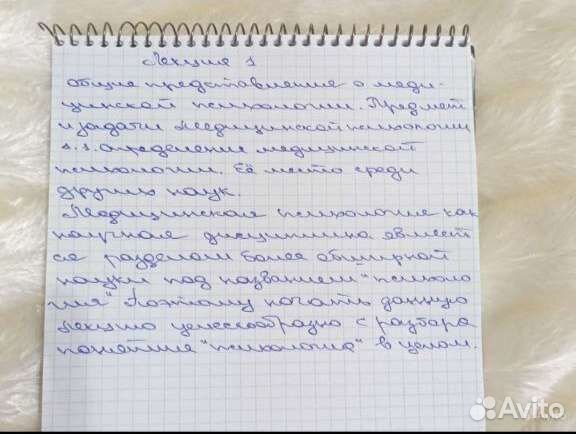 Лекция 1
Общие представление о меди-
цинской психологии. Предмет
и задачи медицинской психологии
1.1. Определение медицинской
психологии. Её место среди
других наук.
Медицинская психология как
научная дисциплина являет
ся разделом более обширной
науки под названием "психоло
гия" Поэтому начать данную
лекцию целесообразно с разбора
понятия "психология" в целом.
Avito